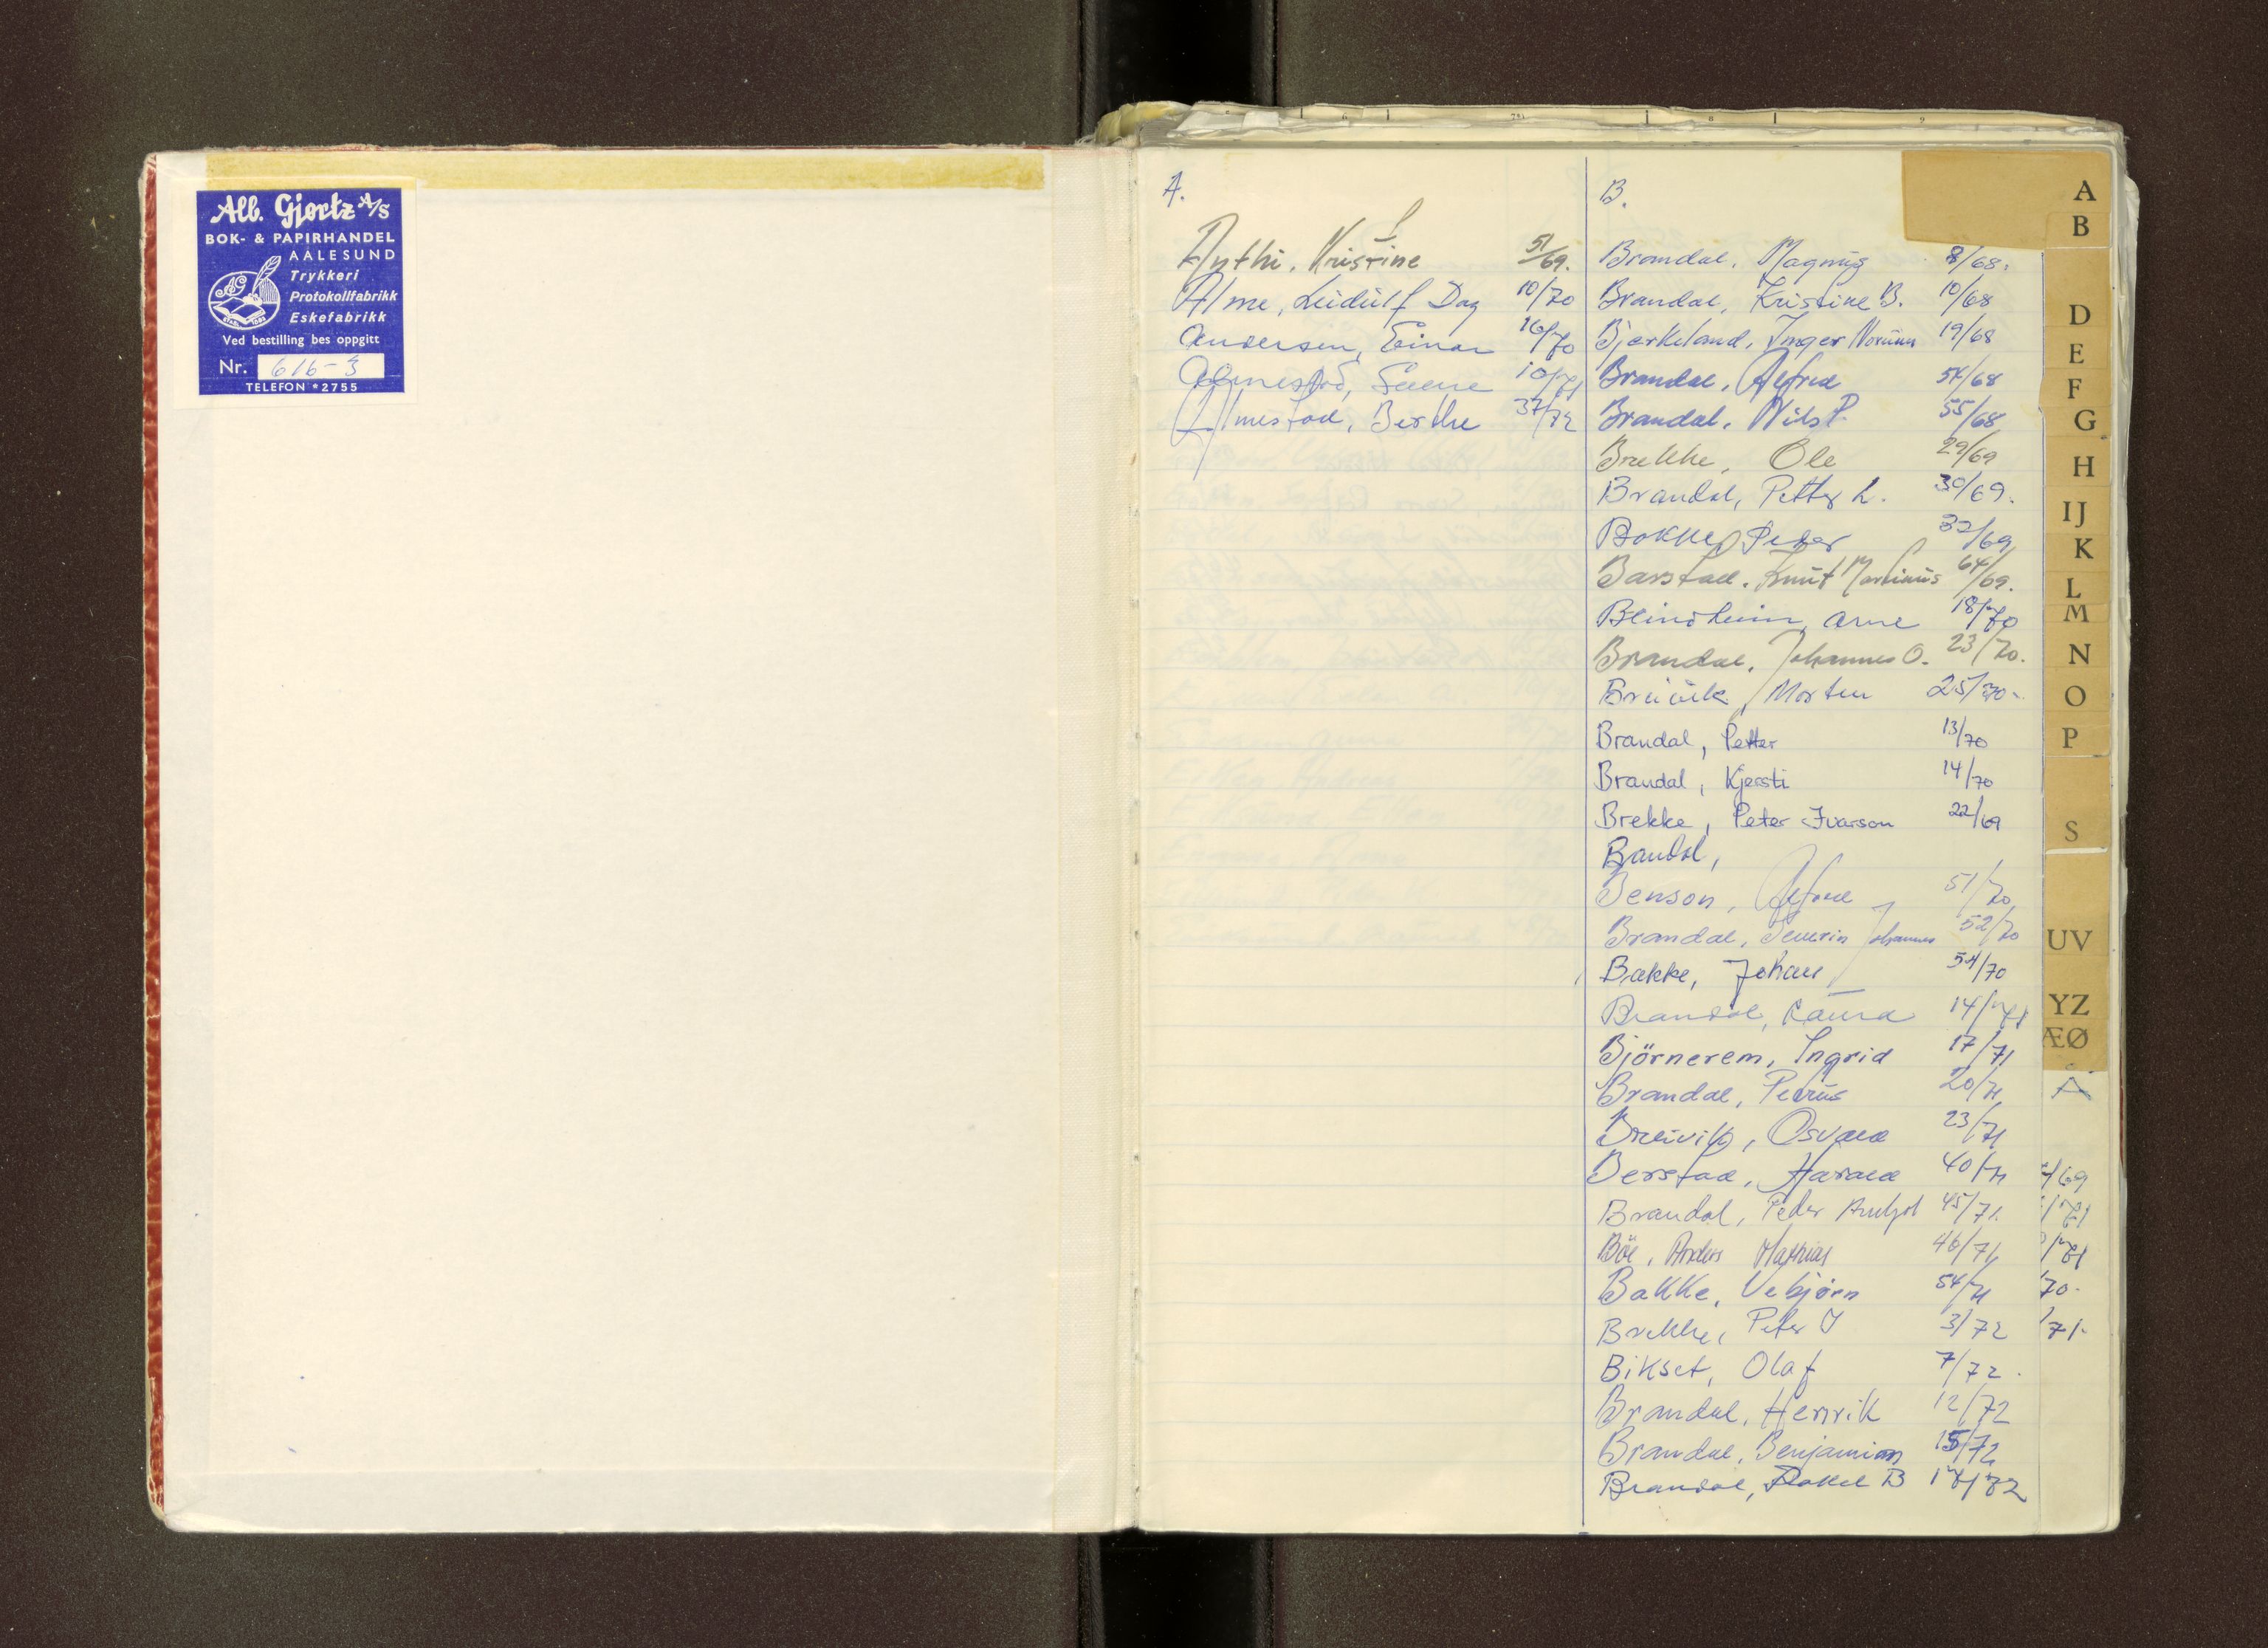 Alb. Gjørtz A/S
BOK- & PAPIRHANDEL
AALESUND
Trykkeri
Protokollfabrikk
Eskefabrikk
Ved bestilling bes oppgitt
Nr. 616-3
TELEFON *2755
A.
Kristine 51/69.
Alme, Leidulf Dag 10/70
Andersen, Einar 16/70
Almestad, 10/71
Almestad, Berthe 37/72
B.
Brandal, Magnus 8/68.
Brandal, Kristine B. 10/68
Bjerkeland, Inger 19/68
Brandal, Alfred 54/68
Brandal, Nils P. 55/68
Brekke, Ole 29/69
Brandal, Petter L. 30/69.
Peder 32/69
Barstad, Knut Martinus 64/69.
Blindheim, Arne 18/70
Brandal, Johannes O. 23/70.
Breivik, Morten 25/70.
Brandal, Petter 13/70
Brandal, Kjersti 14/70
Brekke, Peter Ivarson 22/69
Bandal,
Benson, Alfred 51/70
Brandal, Severin Johannes 52/70
Bakke, Johan 54/70
Brandal, Laura 14/71
Björnerem, Ingrid 17/71
Brandal, Petrus 20/71
Breivik, Osvald 23/71
Berstad, Harald 40/71
Brandal, Peder 45/71.
Böe, Anders Mathias 46/71
Bakke, Vebjørn 54/71
Brekke, Peter I 3/72
Bikset, Olaf 7/72.
Brandal, Henrik 12/72
Brandal, Benjamin 15/72
Brandal, Rakel B 17/72
A
B
D
E
F
G
H
IJ
K
L
M
N
O
P
S
UV
YZ
ÆØ
Å
/69
/71
/71
70.
71.